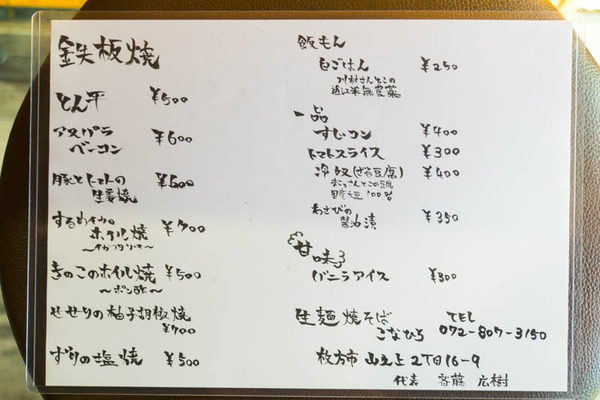 鉄板焼
とん平 ¥500
アスパラ
ベーコン ¥600
豚とトマトの
生姜焼 ¥600
ホイル焼 ¥700
きのこのホイル焼 ¥500
〜ポン酢〜
せせりの柚子胡椒焼
¥700
ずりの塩焼 ¥500
飯もん
白ごはん ¥250
川村さんとこの
近江米無農薬
一品
すじコン ¥400
トマトスライス ¥300
冷奴(ざる豆腐) ¥400
わさびの
醤油漬 ¥350
甘味
バニラアイス ¥300
生麺焼そば
こなひろ
TEL
072-807-3150
枚方市 山之上2丁目16-9
代表 斎藤 広樹